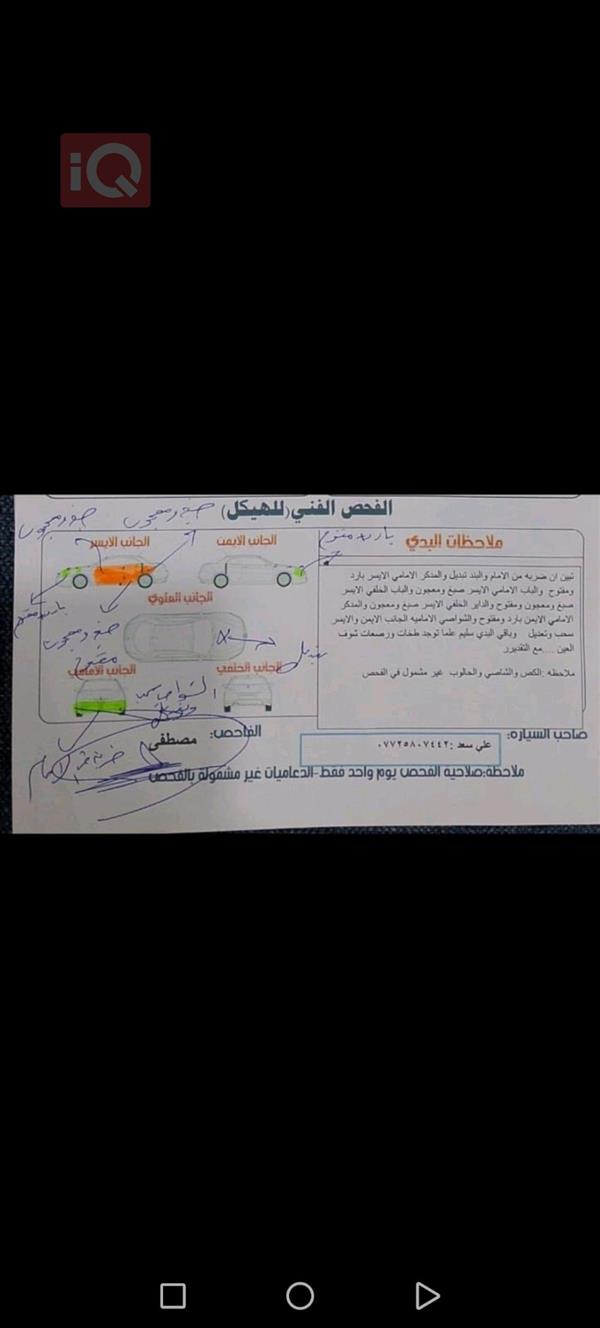 iQ
الفحص الفني (للهيكل)
صبغ ومعجون
صبغ ومعجون
بارد مفتوح
ملاحظات البدي
الجانب الايمن
الجانب الايسر
تبين ان ضربه من الامام والبند تبديل والمدكر الامامي الايسر بارد
ومفتوح والباب الامامي الايسر صبغ ومعجون والباب الخلفي الايسر
صبغ ومعجون ومفتوح والداير الخلفي الايسر صبغ ومعجون والمدكر
الامامي الايمن بارد ومفتوح والشواصي الاماميه الجانب الايمن والايسر
سحب وتعديل وباقي البدي سليم علما توجد طخات ورصعات شوف
العين .....مع التقديرر
ملاحظه :الكص والشاصي والحالوب غير مشمول في الفحص
الجانب العلوي
بارد مفتوح
صبغ ومعجون
مفتوح
تبديل
الجانب الخلفي
الجانب الامامي
الشواصي سحب
وتعديل
ضربة من الامام
صاحب السياره:
علي سعد :٠٧٧٢٥٨٠٧٤٤٢
الفاحص:
مصطفى
ملاحظة:صلاحية الفحص يوم واحد فقط-الدعاميات غير مشمولة بالفحص